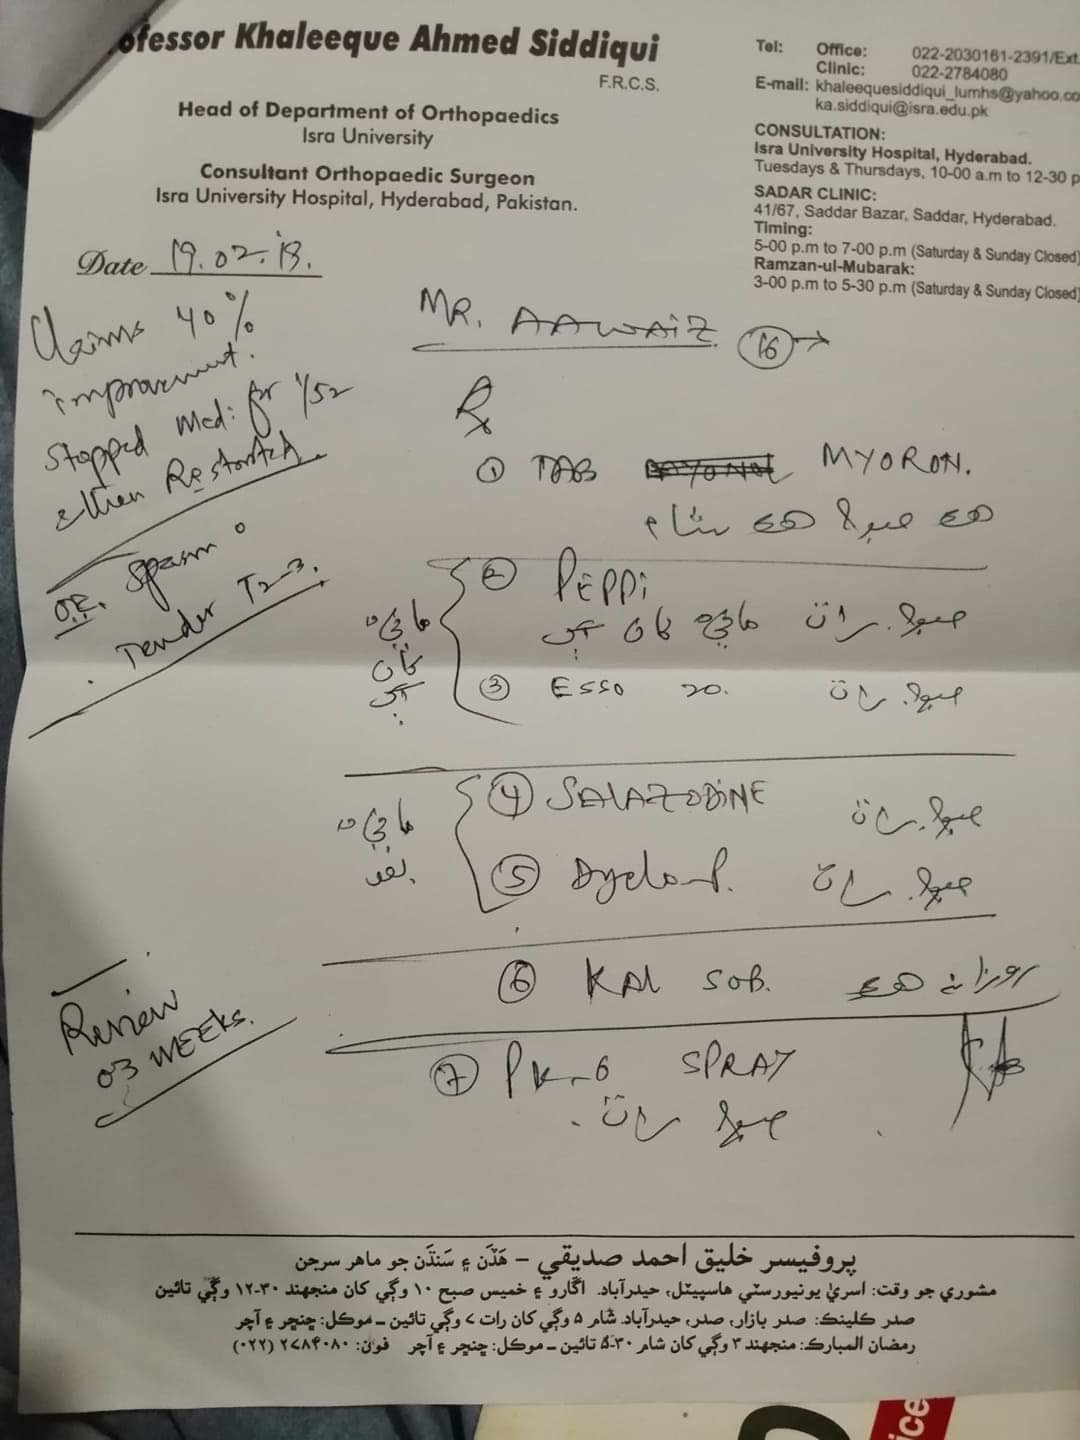 ofessor Khaleeque Ahmed Siddiqui
F.R.C.S.
Head of Department of Orthopaedics
Isra University
Consultant Orthopaedic Surgeon
Isra University Hospital, Hyderabad, Pakistan.
Tel: Office: 022-2030161-2391/Ext.
Clinic: 022-2784080
E-mail: khaleequesiddiqui_lumhs@yahoo.co
ka.siddiqui@isra.edu.pk
CONSULTATION:
Isra University Hospital, Hyderabad.
Tuesdays & Thursdays, 10-00 a.m to 12-30 p
SADAR CLINIC:
41/67, Saddar Bazar, Saddar, Hyderabad.
Timing:
5-00 p.m to 7-00 p.m (Saturday & Sunday Closed)
Ramzan-ul-Mubarak:
3-00 p.m to 5-30 p.m (Saturday & Sunday Closed)
Date 19.02.18.
Claims 40%
improvement.
Stopped Med: for 1/52
then Restarted.
O.E. Spasm o
Tender T2-3.
Review
03 WEEKS.
MR. AAWAIZ 16
Rx
① TAB MYORON.
هڪ صبوح هڪ شام
② PEPPi
صبوح رات ماني کان اڳ
ماني کان اڳ
③ ESSO 20. صبوح رات
④ SALAZODINE صبوح رات
ماني بعد
⑤ Dyclo-P. صبوح رات
⑥ KAL SOB. روزانه هڪ
⑦ PK-6 SPRAY
صبوح رات.
پروفيسر خليق احمد صديقي – هَڏَن ۽ سَنڌَن جو ماهر سرجن
مشوري جو وقت: اسريٰ يونيورسٽي هاسپيٽل، حيدرآباد. اڱارو ۽ خميس صبح ١٠ وڳي کان منجهند ٣٠-١٢ وڳي تائين
صدر ڪلينڪ: صدر بازار، صدر، حيدرآباد. شام ٥ وڳي کان رات ٧ وڳي تائين – موڪل: ڇنڇر ۽ آچر
رمضان المبارڪ: منجهند ٣ وڳي کان شام ٣٠-٥ تائين – موڪل: ڇنڇر ۽ آچر فون: ٢٧٨٤٠٨٠ (٠٢٢)